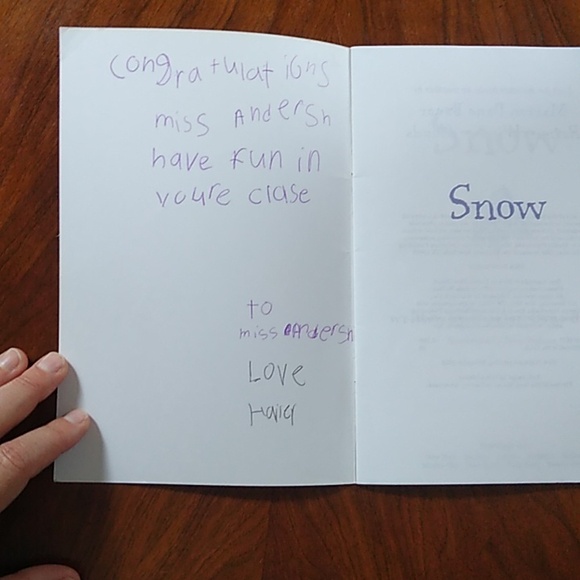 congratulations
miss Andersn
have Fun in
youre clase
to
miss Andersn
Love
Snow